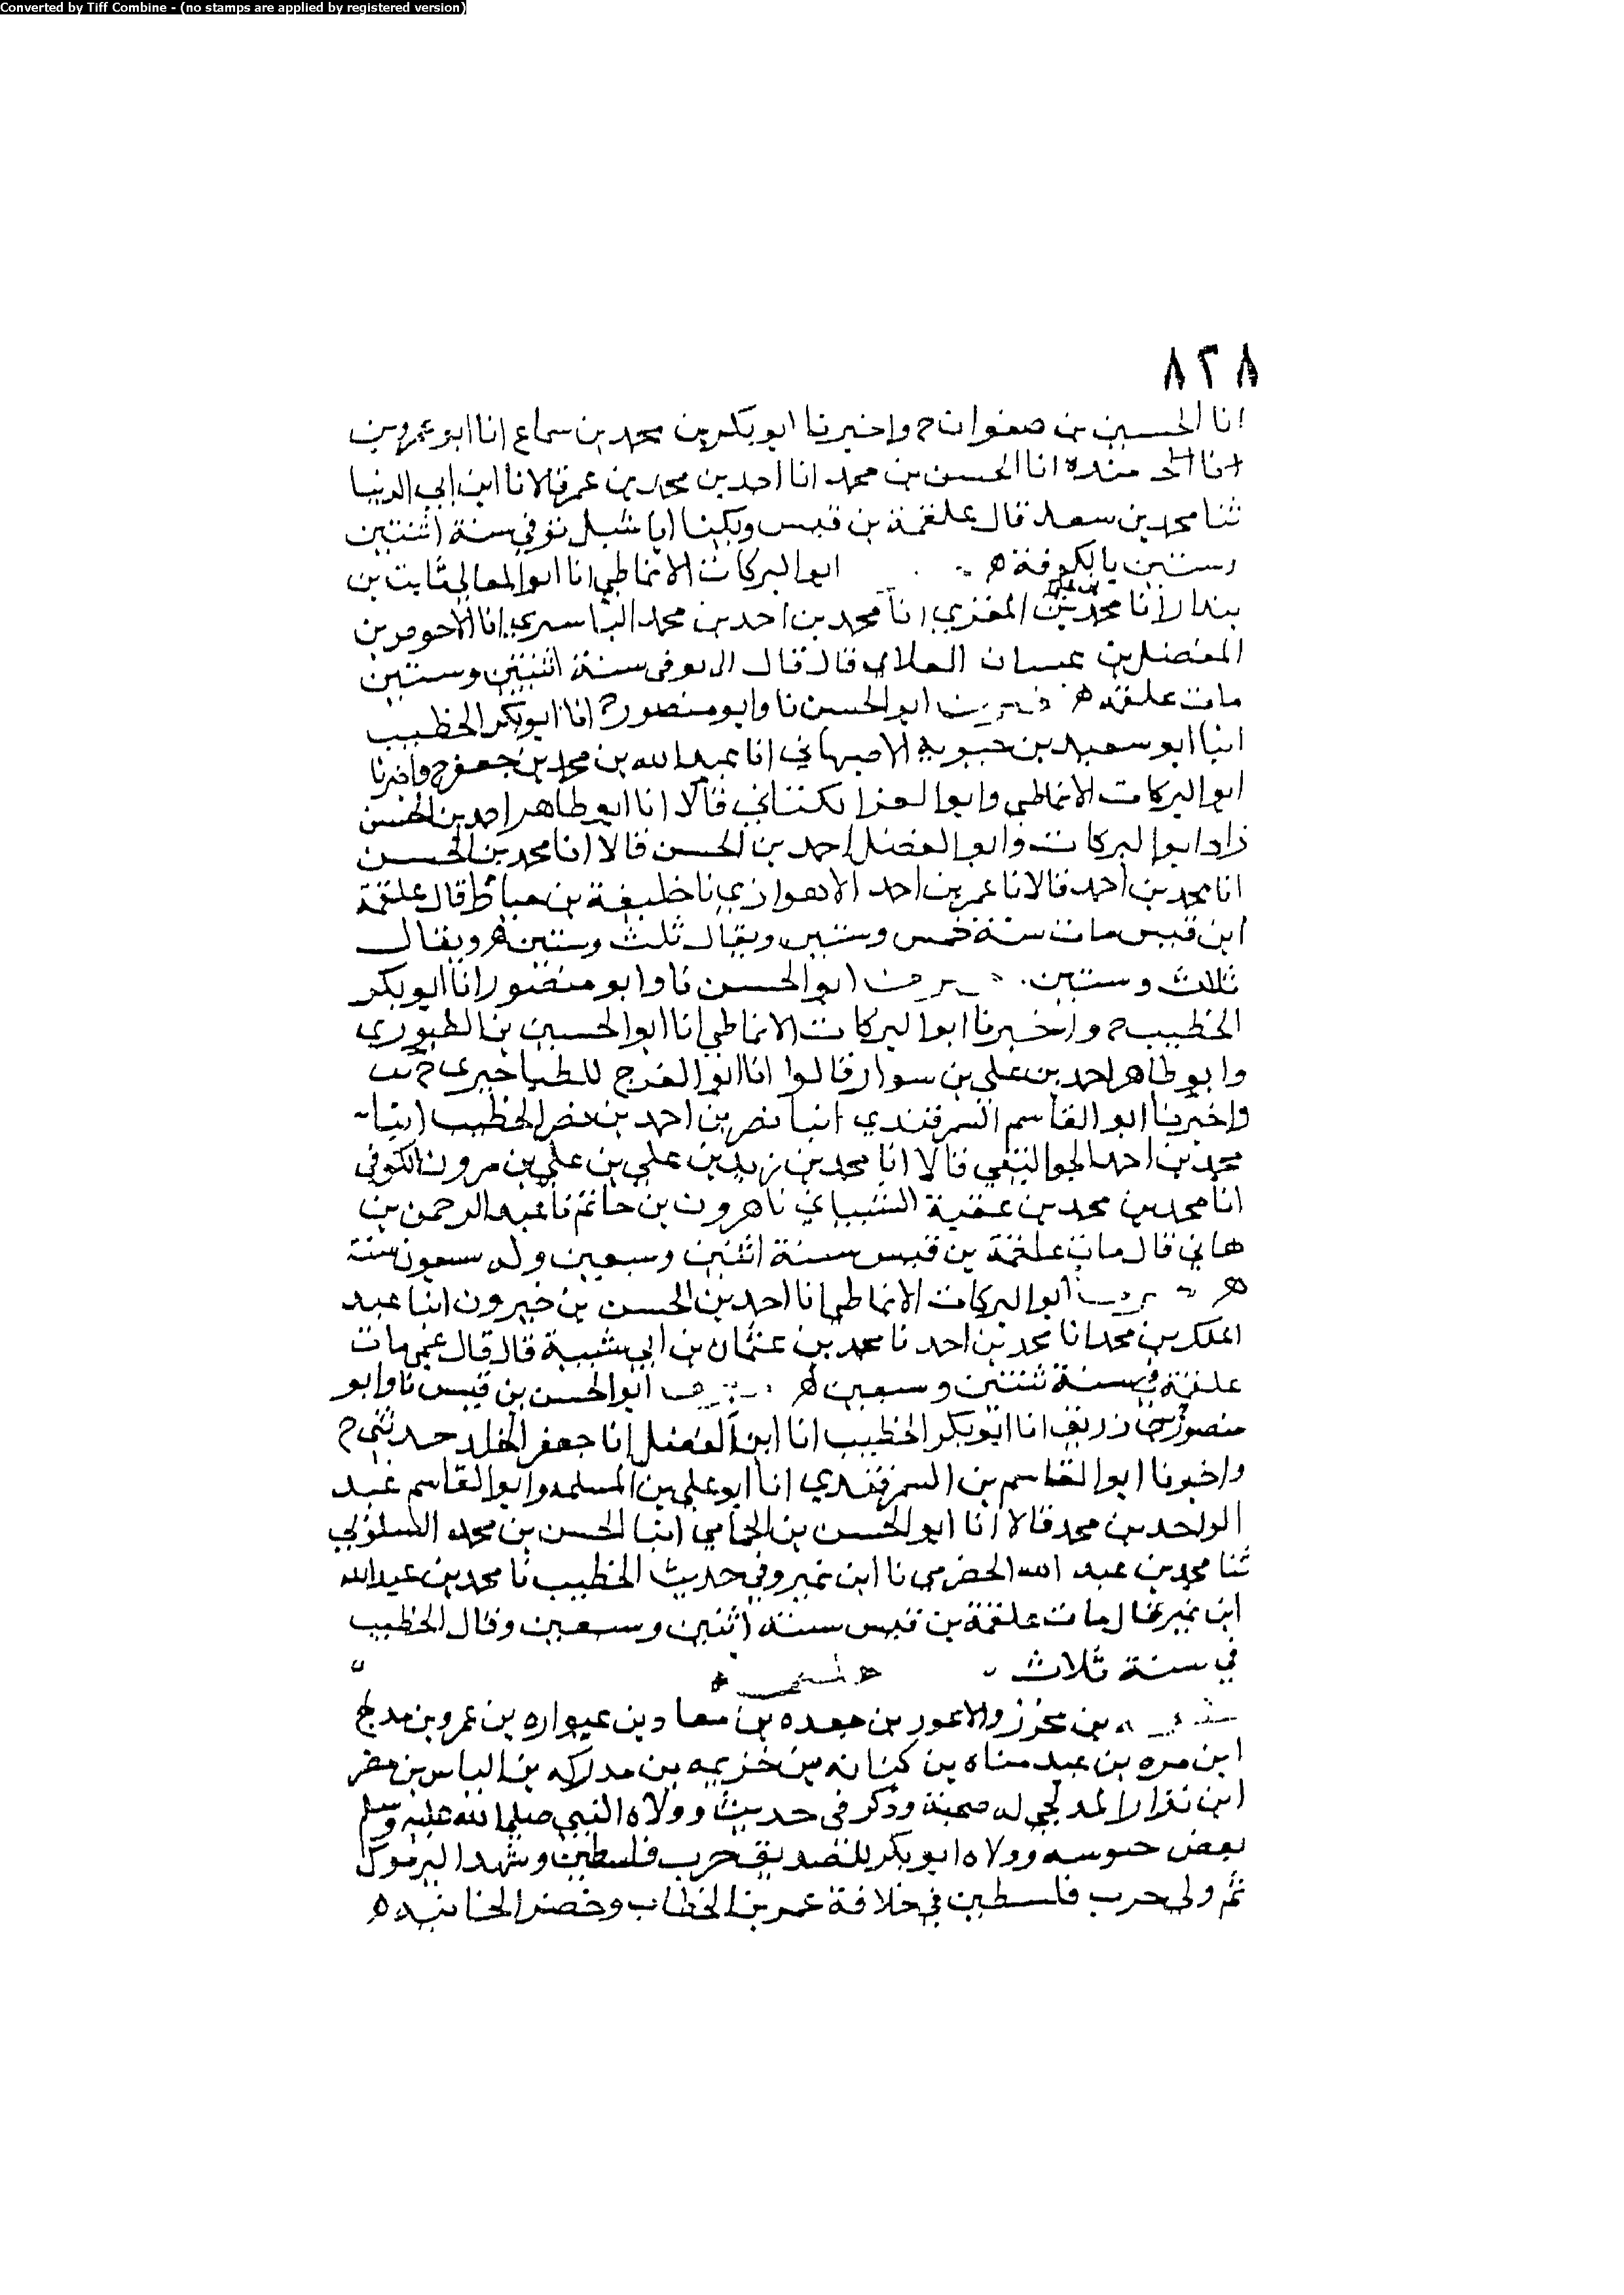 Converted by Tiff Combine - (no stamps are applied by registered version)
٨٢٨
انا الحسين بن صفوان ح واخبرنا ابو بكر بن محمد بن سماع انا ابو عمرو بن
منده انا الحسن بن محمد انا احمد بن محمد بن عمر قالا نا ابن ابي الدنيا
ثنا محمد بن سعد قال علقمة بن قيس ويكنا ابا شبل توفي سنة اثنتين
وستين بالكوفة ه ابو البركات الانماطي انا ابو المعالي ثابت بن
بندار انا محمد بن علي المغزي انا محمد بن احمد بن محمد البابسري انا الاحوص بن
المفضل بن غسان الغلابي قال قال ابي وفي سنة اثنتين وستين
مات علقمه ه ابو الحسن نا وابو منصور ح انا ابو بكر الخطيب
انبا ابو سعيد بن حسويه الاصبهاني انا عبد الله بن محمد بن جعفر ح واخبرنا
ابو البركات الانماطي وابو العز الكتاني قالا انا ابو طاهر احمد بن الحسن
زاد ابو البركات وابو الفضل احمد بن الحسن قالا انا محمد بن الحسن
انا محمد بن احمد قالا نا عمر بن احمد الاهوازي نا خليفة بن خياط قال علقمة
ابن قيس مات سنة خمس وستين ويقال ثلث وستين ه ويقال
ثلاث وستين. ابو الحسن نا وابو منصور انا ابو بكر
الخطيب ح واخبرنا ابو البركات الانماطي انا ابو الحسين بن الطيوري
وابو طاهر احمد بن علي بن سوار قالوا انا ابو الفرج للطناجيري ح
واخبرنا ابو القاسم السمرقندي انبا نصر بن احمد بن نصر الخطيب انبا
محمد بن احمد الجواليقي قالا انا محمد بن زيد بن علي بن علي بن مرون الكوفي
انا محمد بن محمد بن عقبة الشيباني نا هرون بن حاتم نا عبد الرحمن بن
هاني قال مات علقمة بن قيس سنة اثنين وسبعين وله سعون سنة
ه ابو البركات الانماطي انا احمد بن الحسن بن خيرون انبا عبد
الملك بن محمد انا محمد بن احمد نا محمد بن عثمان بن ابي شيبة قال قال عمي مات
علقمة في سنة ثنتين وسبعين ه ابو الحسن بن قيس نا وابو
منصور بن زريق انا ابو بكر الخطيب انا ابن الفضل انا جعفر الخلد حدثني ح
واخبرنا ابو القاسم بن السمرقندي انا ابو علي بن المسلمه وابو القاسم عبد
الواحد بن محمد قالا انا ابو الحسن بن الحمامي انبا الحسن بن محمد السلولي
ثنا محمد بن عبد الله الحضرمي نا ابن نمير وفي حديث الخطيب نا محمد بن عبد الله
ابن نمير قال مات علقمة بن قيس سنة اثنين وسبعين وقال الخطيب
في سنة ثلاث
بن مجزز والاعور بن جعده بن معاد بن عيواره بن عمرو بن مدلج
ابن مره بن عبد مناه بن كنانه بن خزيمه بن مدركه بن الياس بن مضر
ابن نزار المدلجي له صحبة وذكر في حديث وولاه النبي صلى الله عليه وسلم
بعض حيوسه وولاه ابو بكر للصديق حرب فلسطين وشهد اليرموك
ثم ولي حرب فلسطين في خلافة عمر بن الخطاب وحضر الجابيه ه